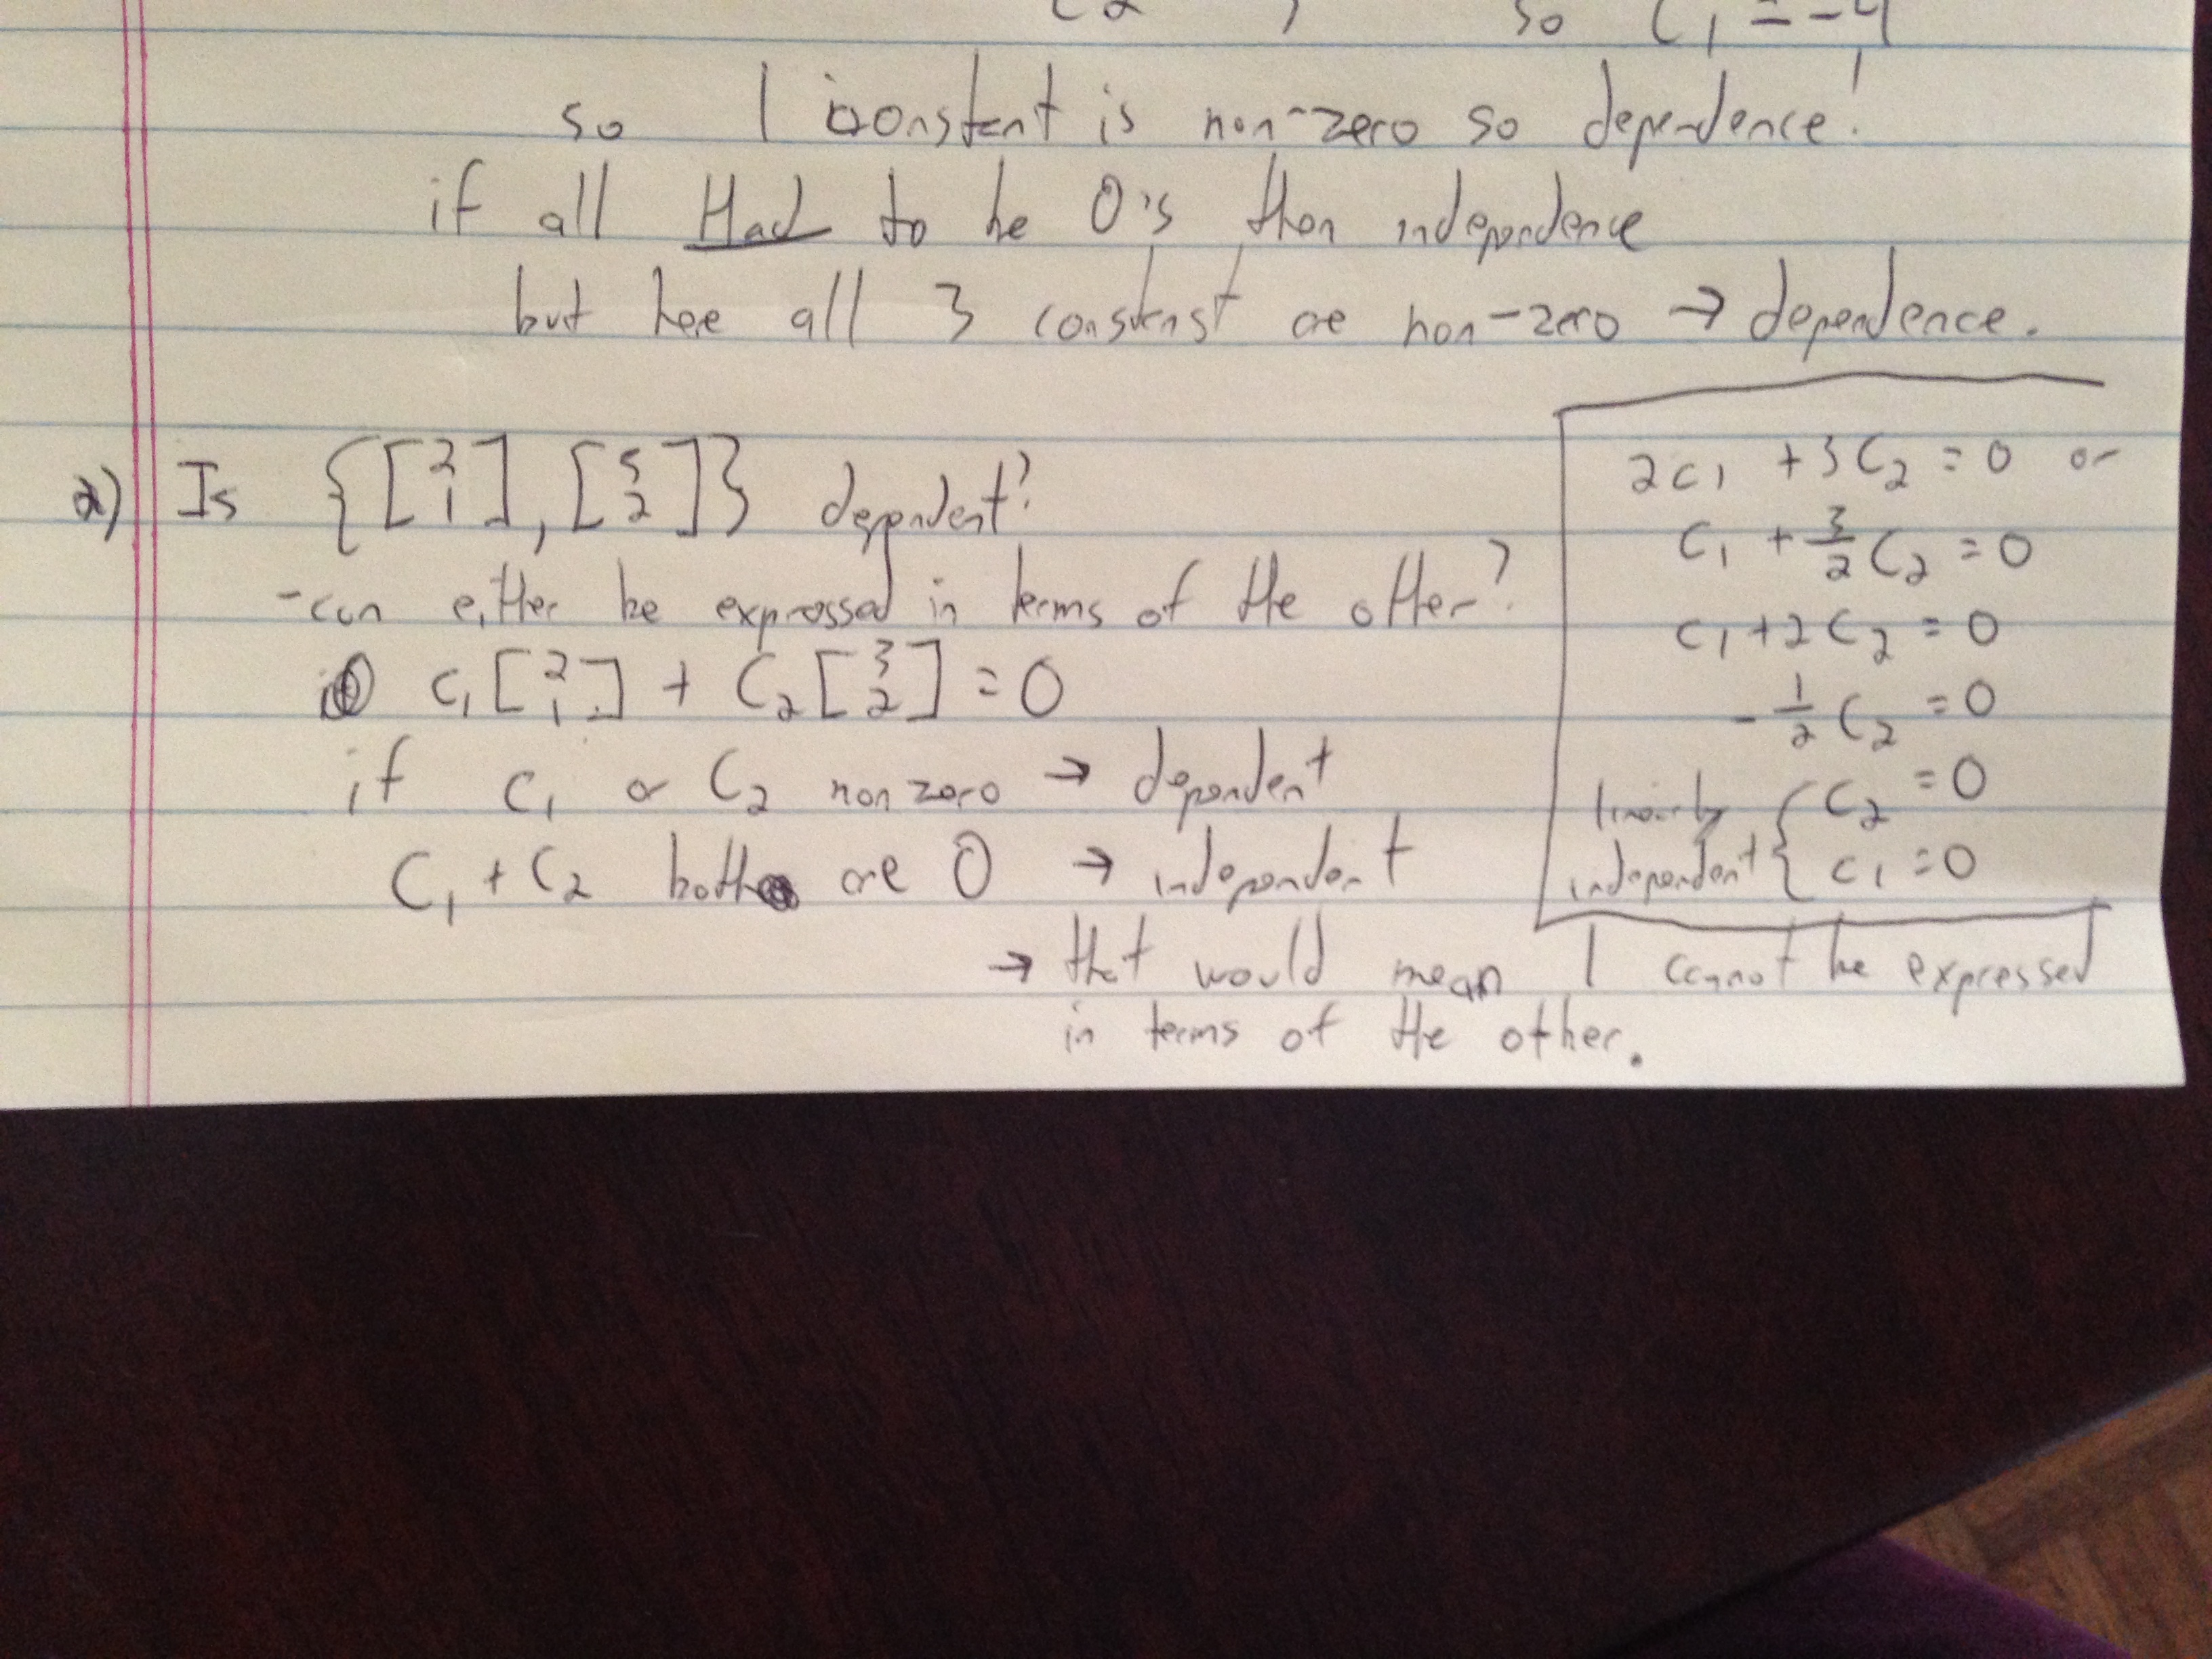 so C1 = -4
so 1 constant is non-zero so dependence.
if all Had to be 0's then independence
but here all 3 constenst are non-zero → dependence.
2) Is {[2 1], [5 2]} dependent?
-can either be expressed in terms of the other?
C1[2 1] + C2[3 2] = 0
if C1 or C2 nonzero → dependent
C1 + C2 both are 0 → independent
→ that would mean 1 cannot be expressed
in terms of the other.
2C1 + 3C2 = 0 or
C1 + 3/2 C2 = 0
C1 + 2C2 = 0
-1/2 C2 = 0
linearly { C2 = 0
independent } C1 = 0